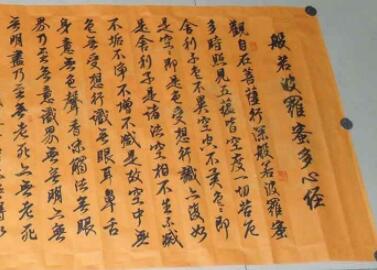 般若波羅蜜多心経
觀自在菩薩行深般若波羅蜜
多時照見五蘊皆空度一切苦厄
舍利子色不異空々不異色々即
是空々即是色受想行識亦復如
是舍利子是諸法空相不生不滅
不垢不淨不增不減是故空中無
色無受想行識無眼耳鼻舌
身意無色聲香味觸法無眼
界乃至無意識界無無明亦無
無明盡乃至無老死亦無老死